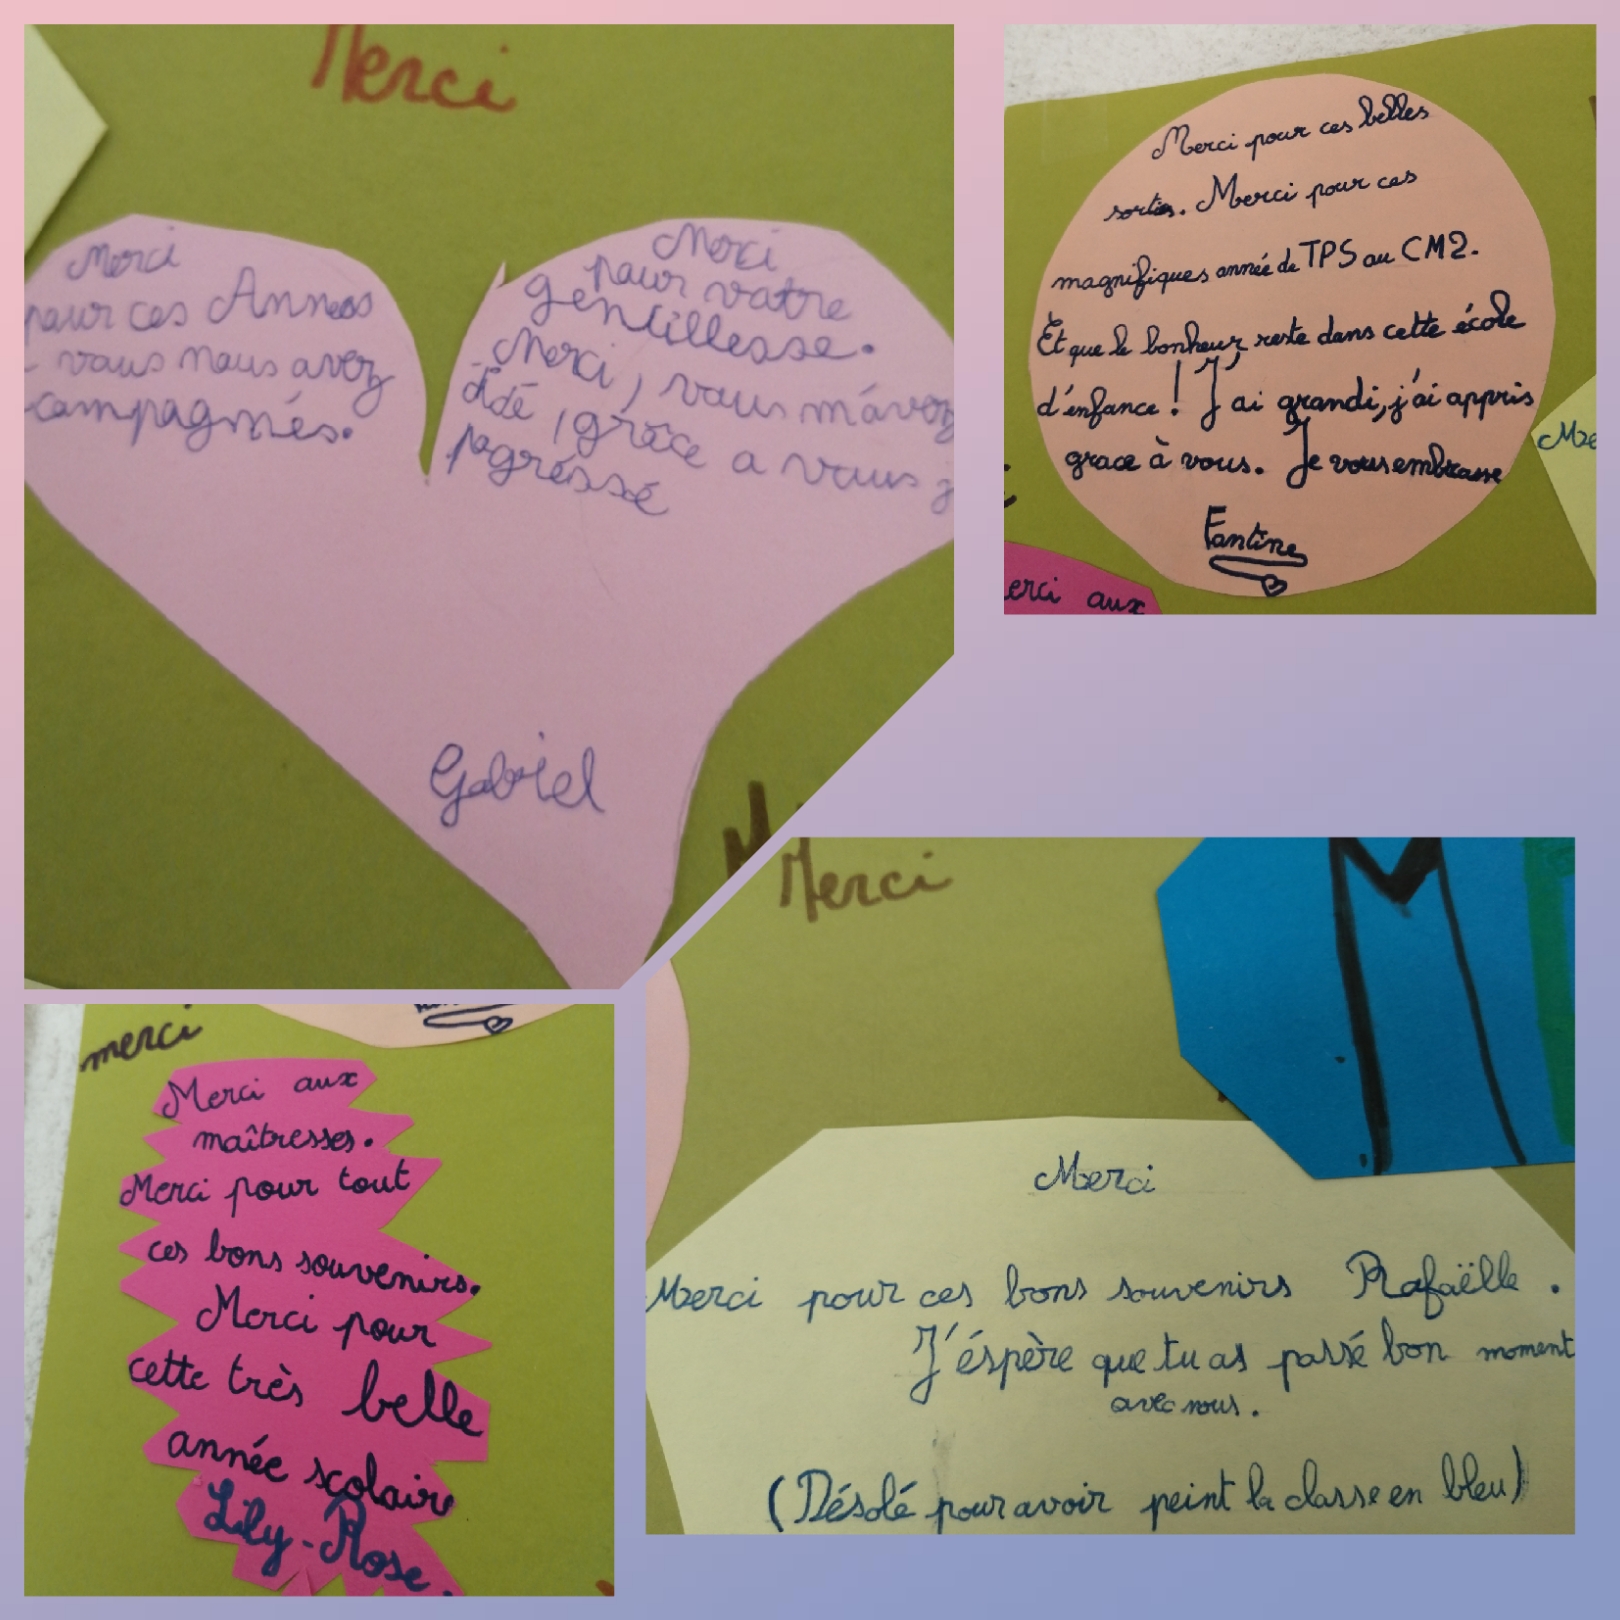 Merci
Merci
pour ces Annees
vous nous avez
compagnés.
Merci
pour votre
gentillesse.
Merci, vous m'avez
aidé, grâce a vous j
pogréssé
Gabriel
Merci pour ces belles
sorties. Merci pour ces
magnifiques année de TPS au CM2.
Et que le bonheur reste dans cette école
d'enfance ! J'ai grandi, j'ai appris
grace à vous. Je vous embrasse
Fantine
erci aux
Mer
merci
Merci aux
maîtresses.
Merci pour tout
ces bons souvenirs.
Merci pour
cette très belle
année scolaire
Lily-Rose.
Merci
M
Merci
Merci pour ces bons souvenirs Rafaëlle.
J'éspère que tu as passé bon moment
avec nous.
(Désolé pour avoir peint la classe en bleu)